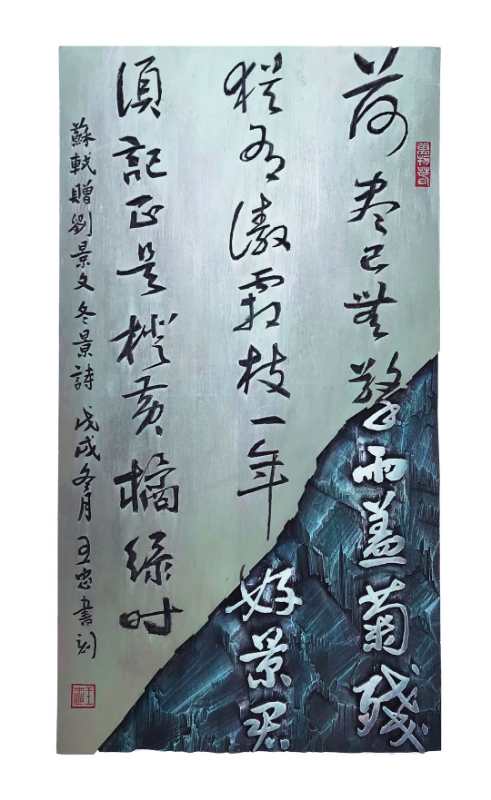 荷尽已無擎雨盖菊殘
猶有傲霜枝一年好景君
須記正是橙黄橘绿时
蘇軾贈劉景文冬景詩 戊戌冬月 王忠書刻